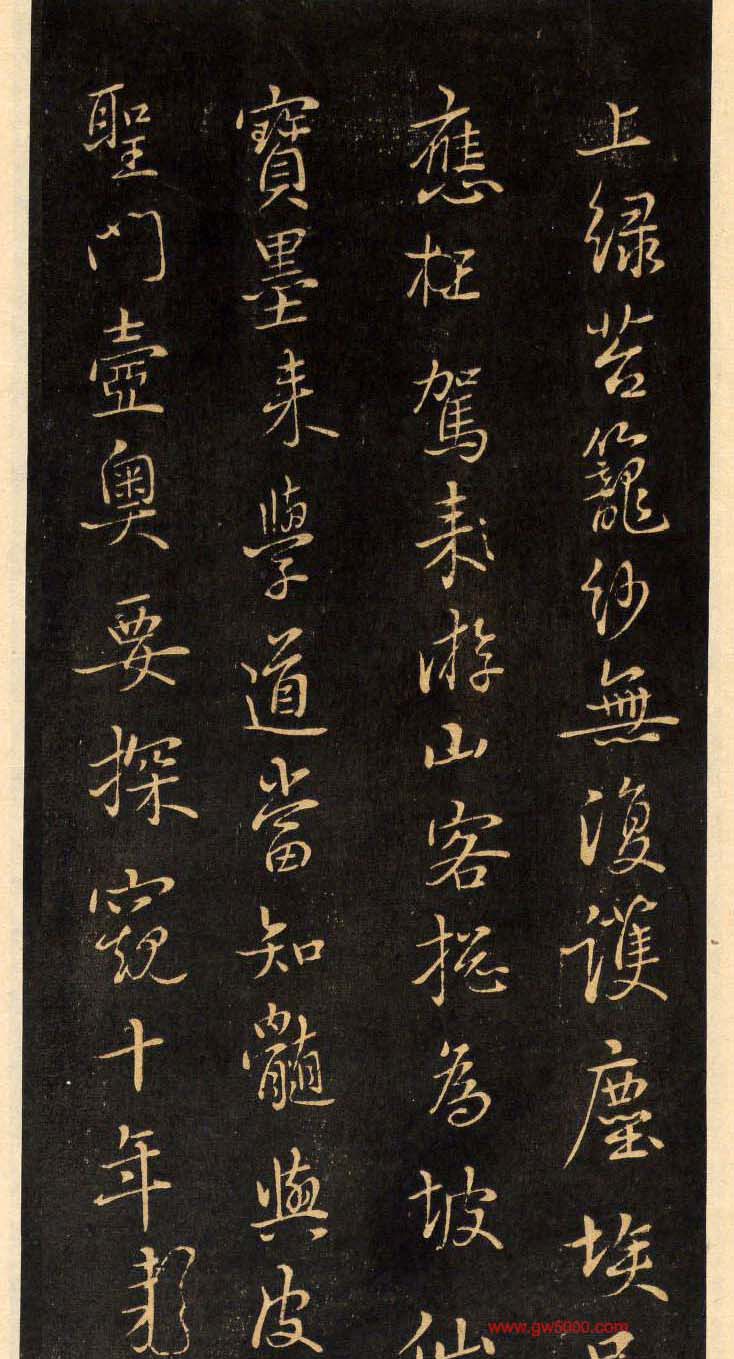 上綠苔籠紗無復護塵埃
應枉駕来游山客揔為坡仙
寶墨来學道當知髓與皮
聖門壼奥要探窺十年
www.gw5000.com